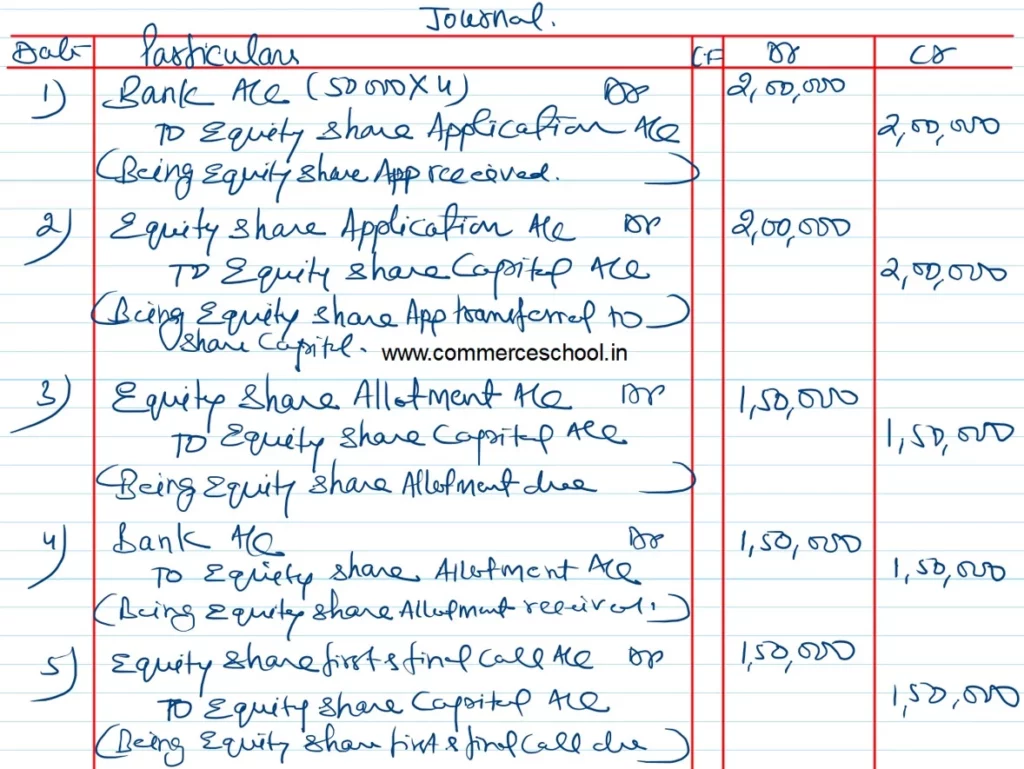 Journal.
Date Particulars LF Dr Cr
1) Bank A/c (50000×4) Dr 2,00,000
To Equity Share Application A/c 2,00,000
(Being Equity Share App received. )
2) Equity Share Application A/c Dr 2,00,000
To Equity Share Capital A/c 2,00,000
(Being Equity Share App transferred to )
Share Capital. www.commerceschool.in
3) Equity Share Allotment A/c Dr 1,50,000
To Equity Share Capital A/c 1,50,000
(Being Equity Share Allotment due )
4) Bank A/c Dr 1,50,000
To Equity Share Allotment A/c 1,50,000
(Being Equity Share Allotment received. )
5) Equity Share first & final Call A/c Dr 1,50,000
To Equity Share Capital A/c 1,50,000
(Being Equity Share first & final Call due )